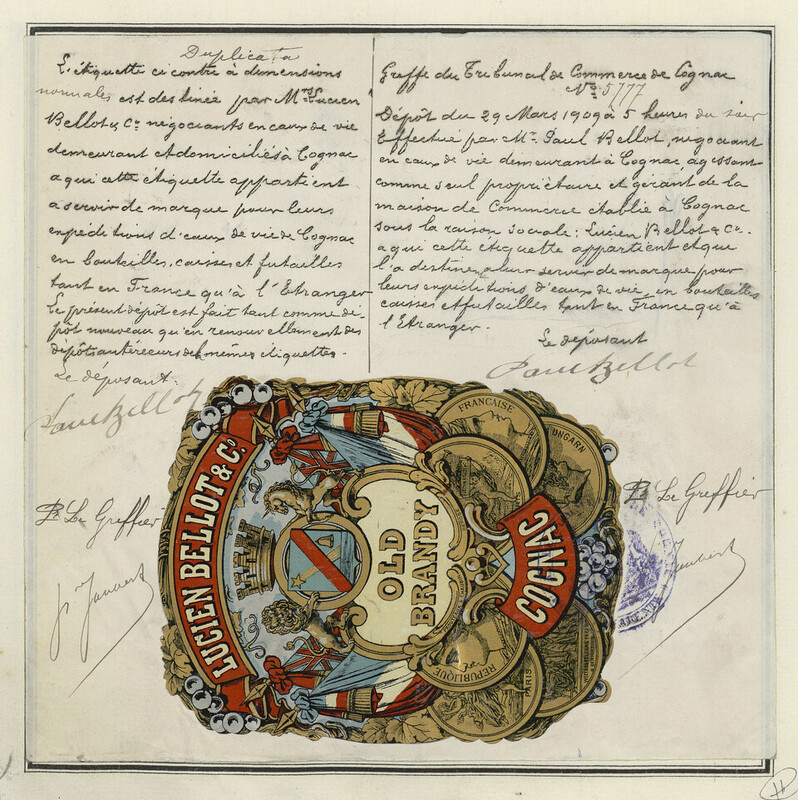 Duplicata
L'étiquette ci contre à dimensions
normales est destinée par Mrs Lucien
Bellot & Cie négociants en eaux de vie
demeurant et domiciliés à Cognac
a qui cette étiquette appartient
a servir de marque pour leurs
expéditions d'eaux de vie de Cognac
en bouteilles, caisses et futailles
tant en France qu'à l'Etranger
Le présent dépôt est fait tant comme dé-
pôt nouveau qu'en renouvellement des
dépôts antérieurs des mêmes étiquettes.
Le déposant:
Paul Bellot
Pr Le Greffier
Greffe du Tribunal de Commerce de Cognac
No 5777
Dépôt du 29 Mars 1909 à 5 heures du soir
Effectué par Mr. Paul Bellot, négociant
en eaux de vie demeurant à Cognac agissant
comme seul propriétaire et gérant de la
maison de Commerce établie à Cognac
sous la raison sociale: Lucien Bellot & Co.
a qui cette étiquette appartient et que
l'a destine a leur servir de marque pour
leurs expéditions d'eaux de vie en bouteilles
caisses et futailles tant en France qu'à
l'Etranger.
Le déposant
Paul Bellot
Pr Le Greffier
LUCIEN BELLOT & Co
OLD
BRANDY
COGNAC
FRANCAISE
UNGARN
REPUBLIQUE
PARIS